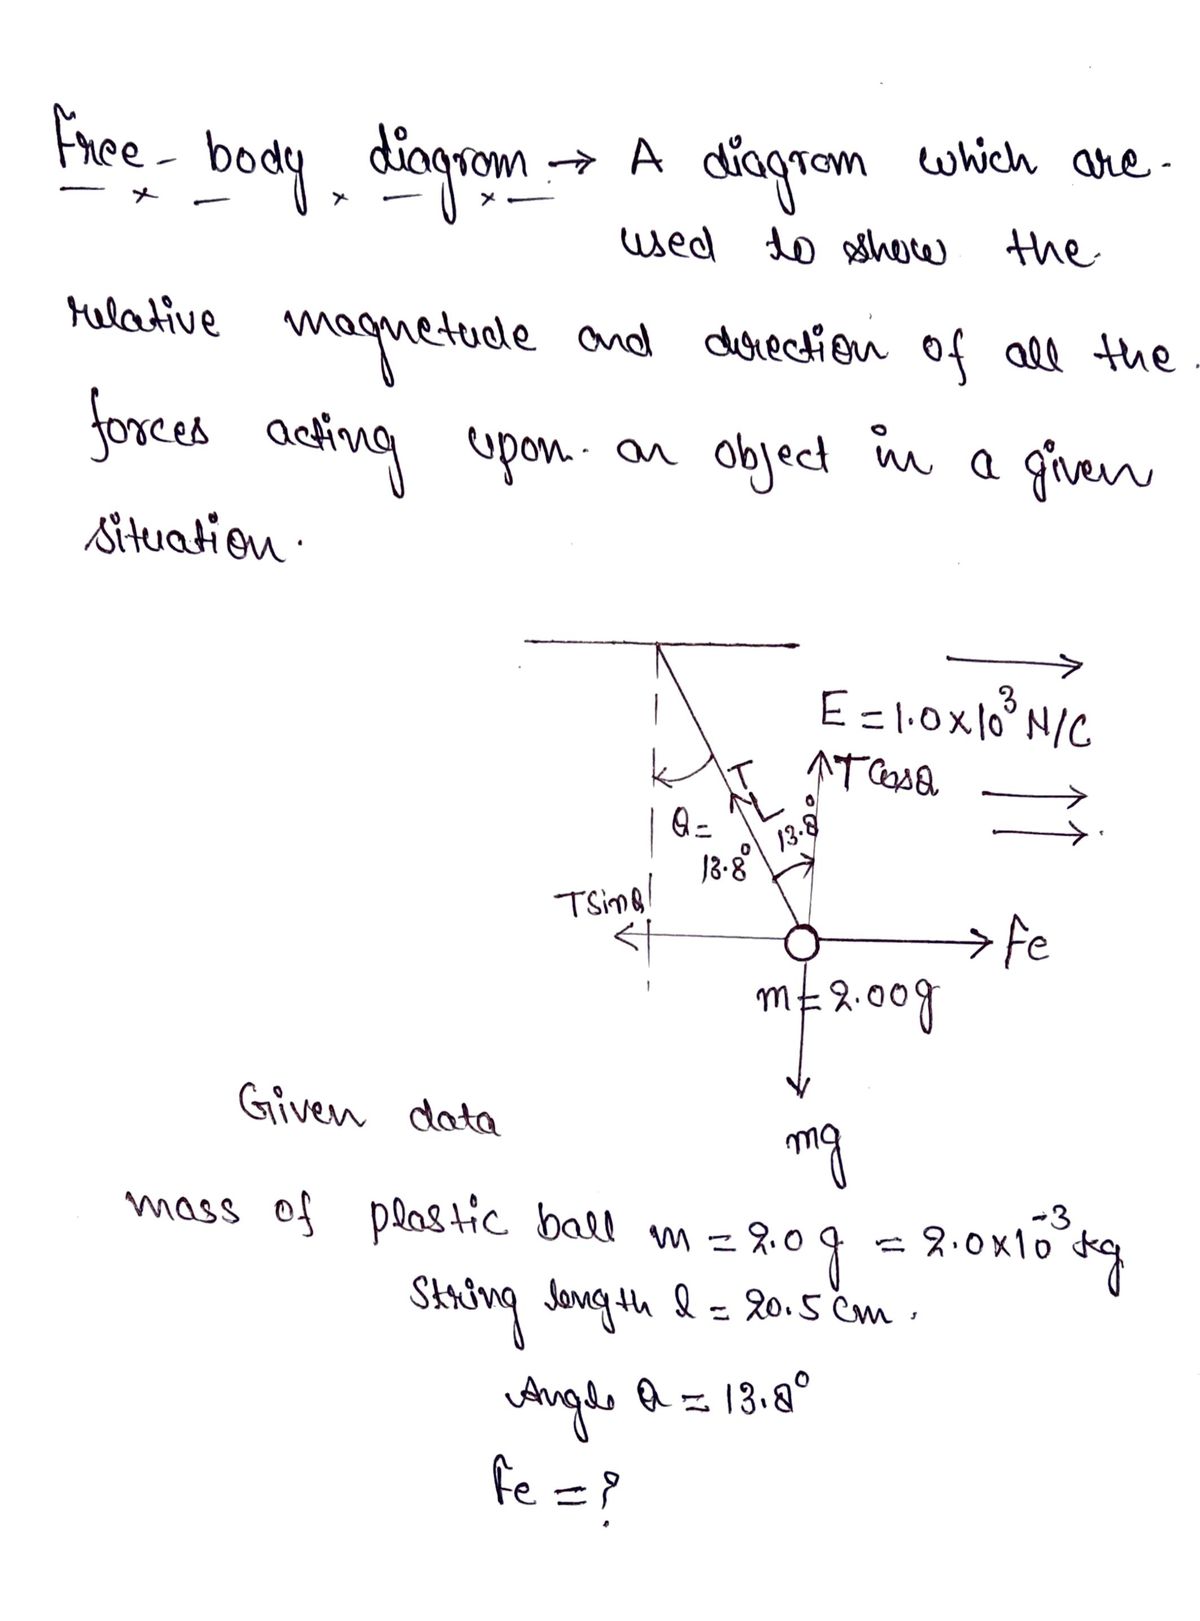 Free-body diagram → A diagram which are
used to show the
relative magnetude and direction of all the
forces acting upon an object in a given
situation.
E = 1.0×10³ N/C
T
TCosθ
L
θ =
13.8°
13.8°
TSinθ
Fe
m = 2.00g
mg
Given data
mass of plastic ball m = 2.0 g = 2.0×10⁻³ kg
String length l = 20.5 cm.
Angle θ = 13.8°
Fe = ?